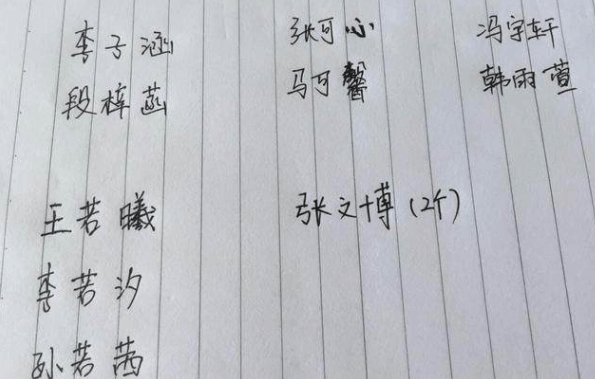 李子涵 张可心 冯宇轩
段梓菡 马可馨 韩雨萱
王若曦 张文博(2个)
李若汐
孙若茜